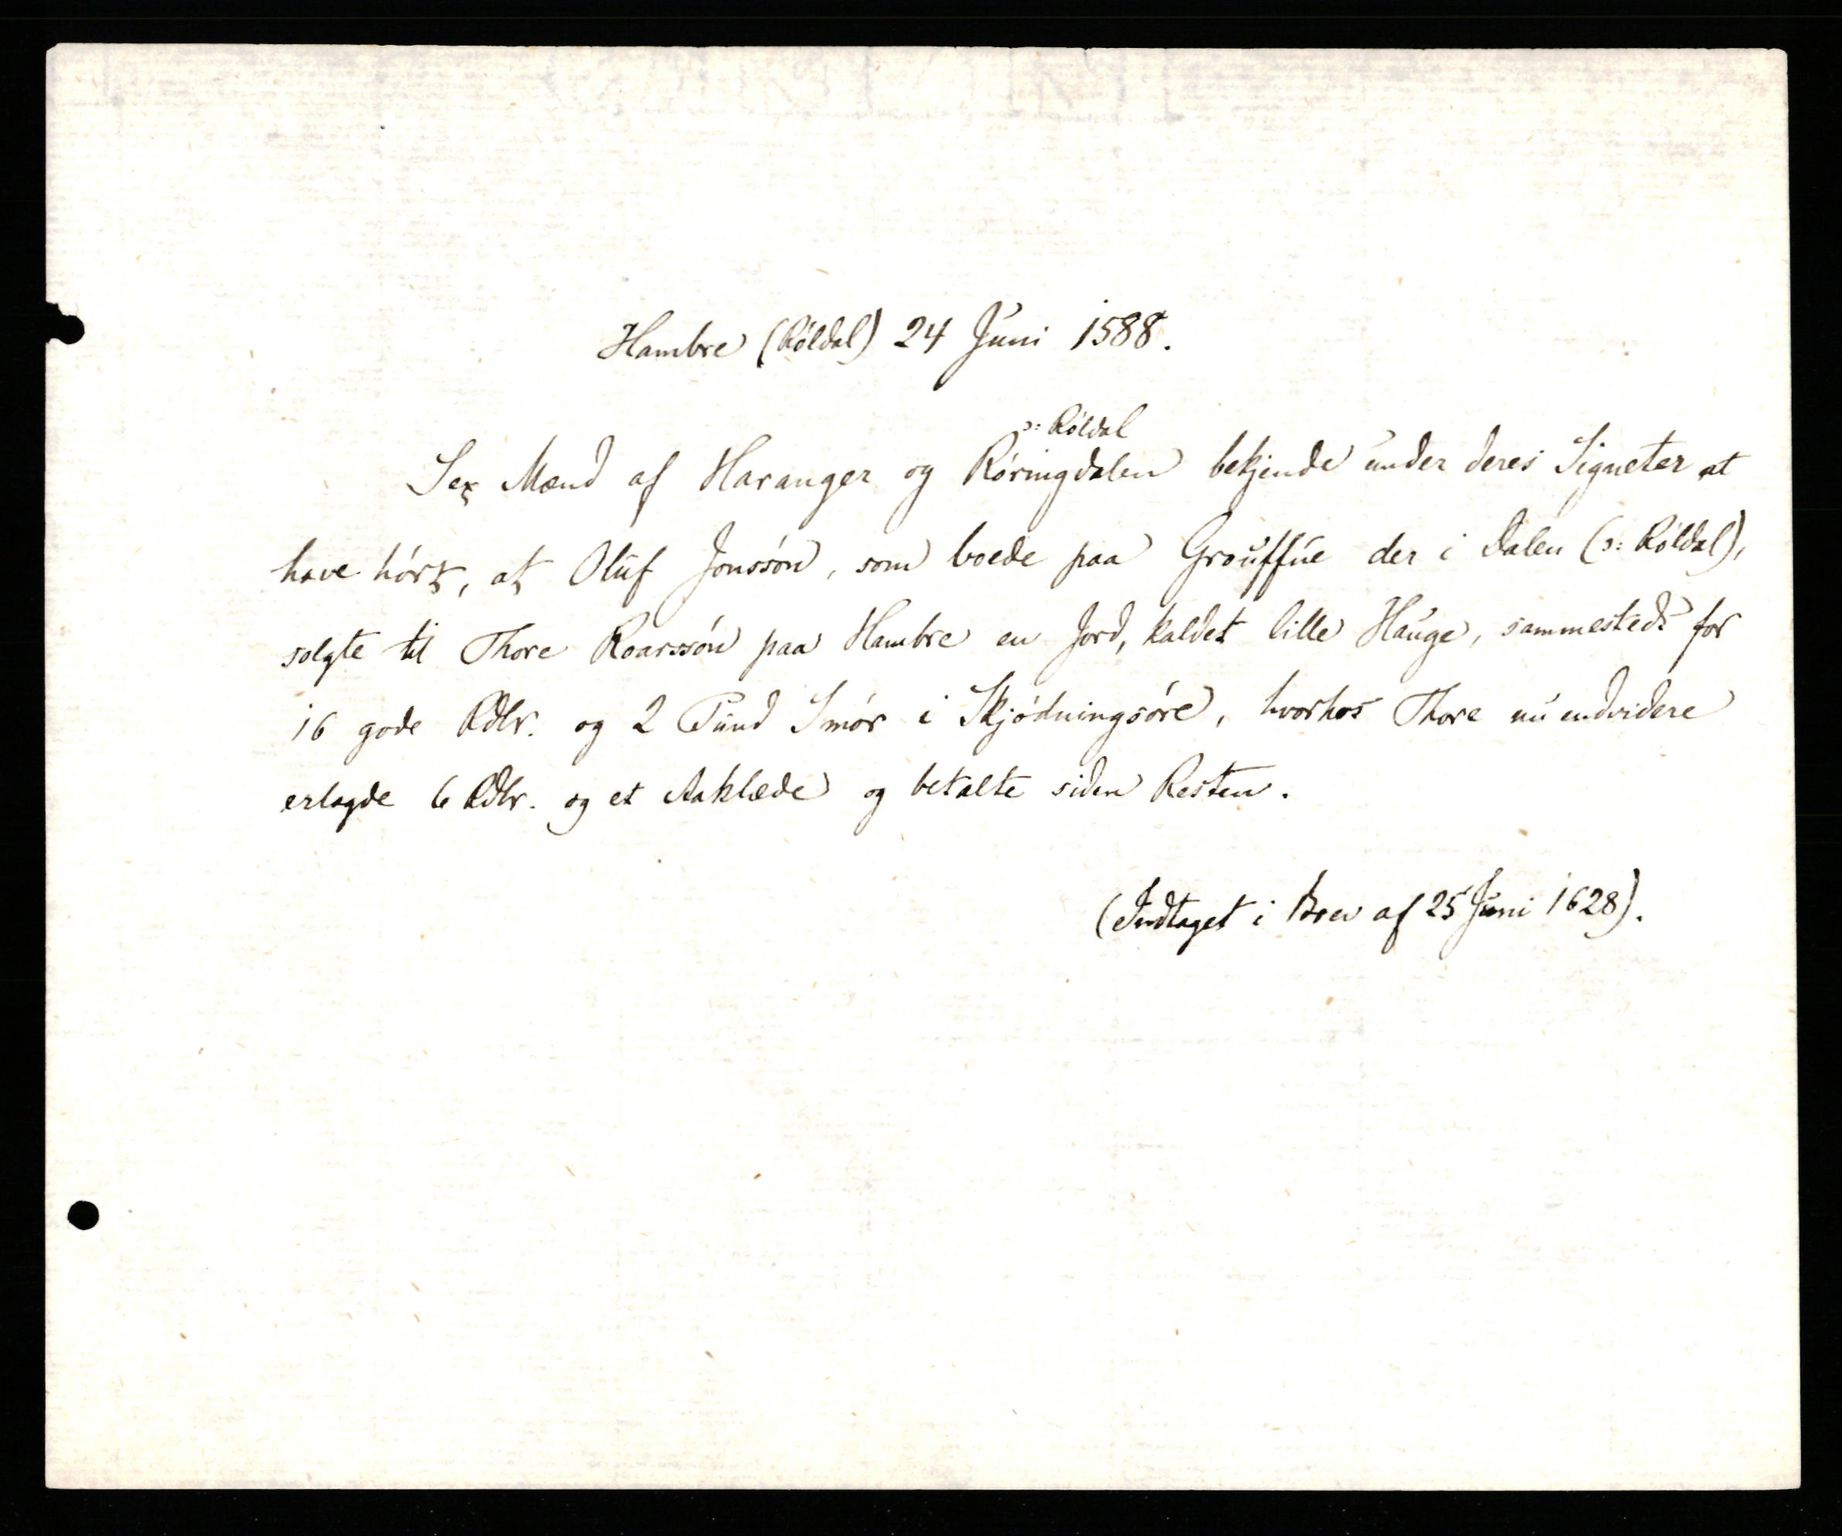 Hambre (Röldal) 24 Juni 1588.
ɔ: Röldal
Sex Mænd af Haranger og Röringdalen bekjende under deres Signeter at
have hört, at Oluf Jonssön, som boede paa Grouffue der i Dalen (ɔ: Röldal),
solgte til Thore Roarssön paa Hambre en Jord, kaldet lille Hauge, sammesteds for
16 gode Rdlr. og 2 Pund Smör i Skjödningsöre, hvorhos Thore nu endvidere
erlagde 6 Rdlr. og et Aaklæde og betalte siden Resten.
(Indtaget i Brev af 25 Juni 1628).